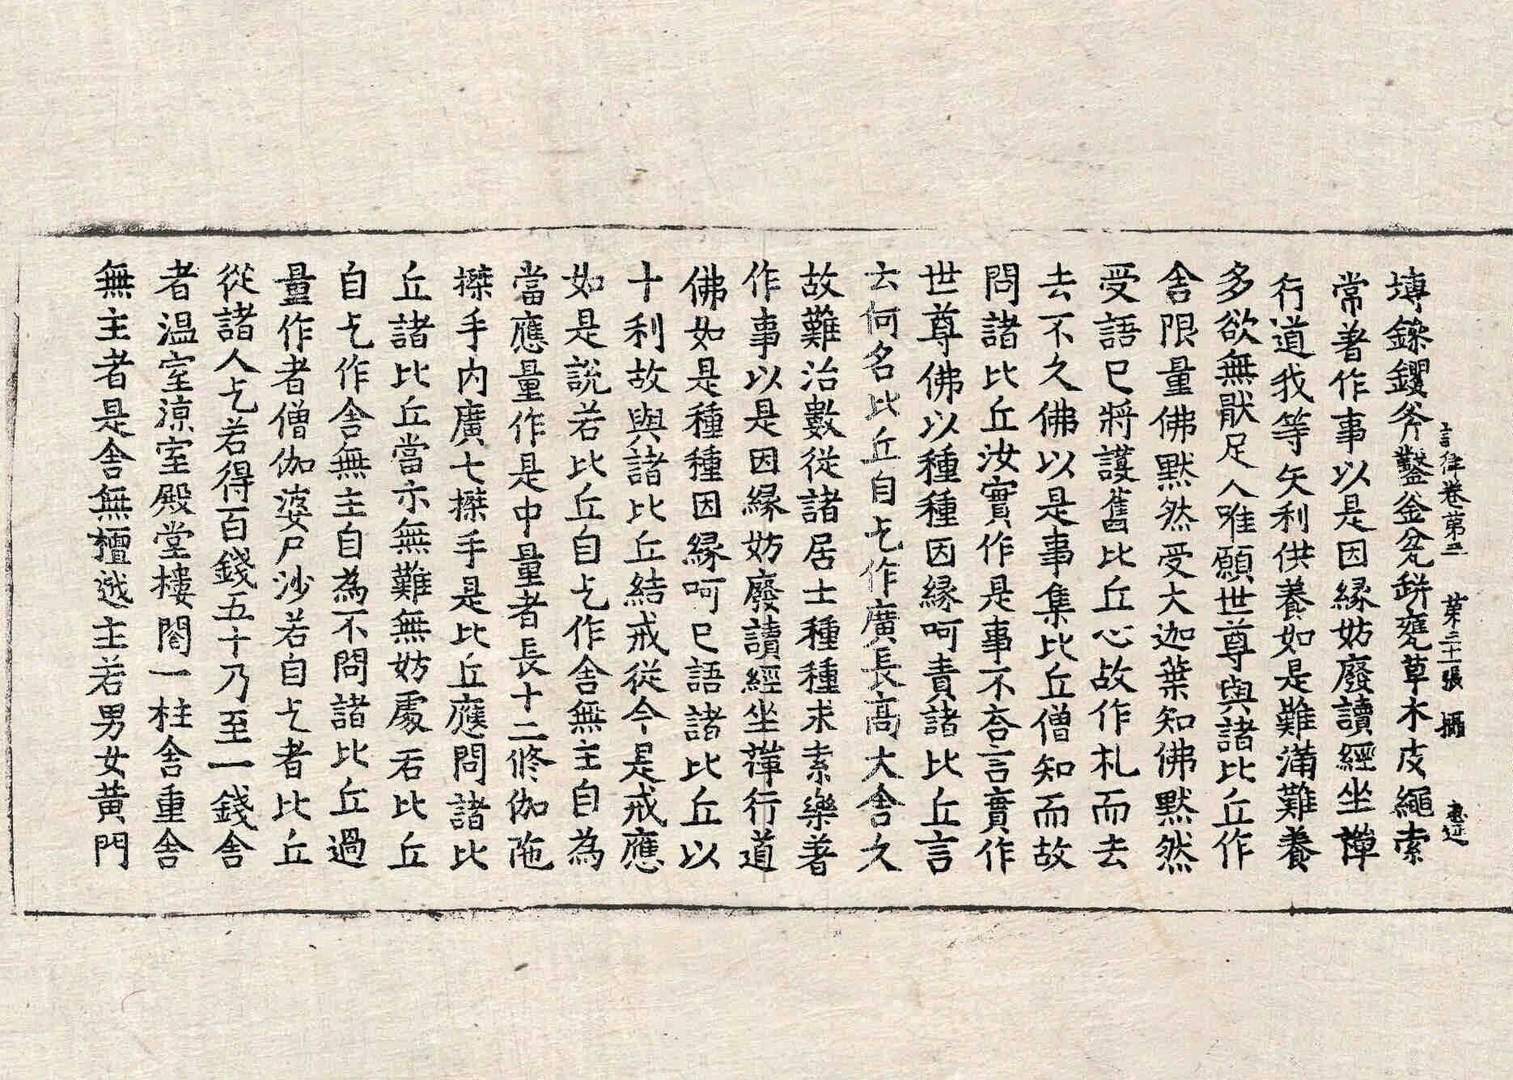 塼鏫钁斧鑿釜瓮缾甕草木皮繩索
言律卷第三 第二十張 攝
常著作事以是因緣妨廢讀經坐禪
行道我等失利供養如是難滿難養
多欲無猒足人唯願世尊與諸比丘作
舍限量佛默然受大迦葉知佛默然
受語已將護舊比丘心故作札而去
去不久佛以是事集比丘僧知而故
問諸比丘汝實作是事不荅言實作
世尊佛以種種因緣呵責諸比丘言
云何名比丘自乞作廣長高大舍久
故難治數從諸居士種種求索樂著
作事以是因緣妨廢讀經坐禪行道
佛如是種種因緣呵已語諸比丘以
十利故與諸比丘結戒從今是戒應
如是說若比丘自乞作舍無主自為
當應量作是中量者長十二修伽陁
搩手內廣七搩手是比丘應問諸比
丘諸比丘當示無難無妨處若比丘
自乞作舍無主自為不問諸比丘過
量作者僧伽婆尸沙若自乞者比丘
從諸人乞若得百錢五十乃至一錢舍
者温室凉室殿堂樓閣一柱舍重舍
無主者是舍無檀越主若男女黃門